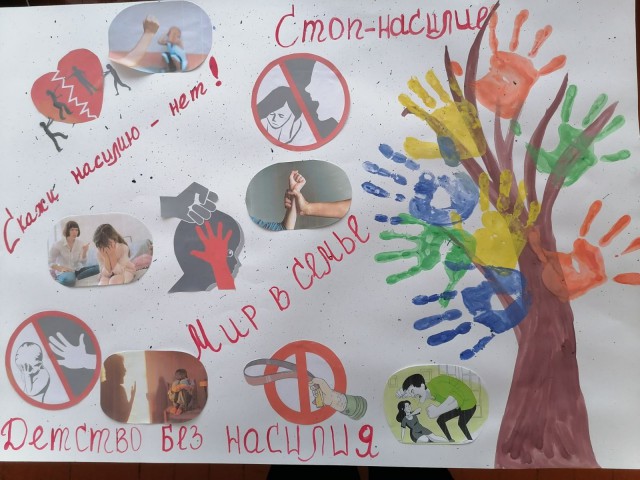 Стоп-насилие
Скажи насилию - нет!
Мир в семье
Детство без насилия